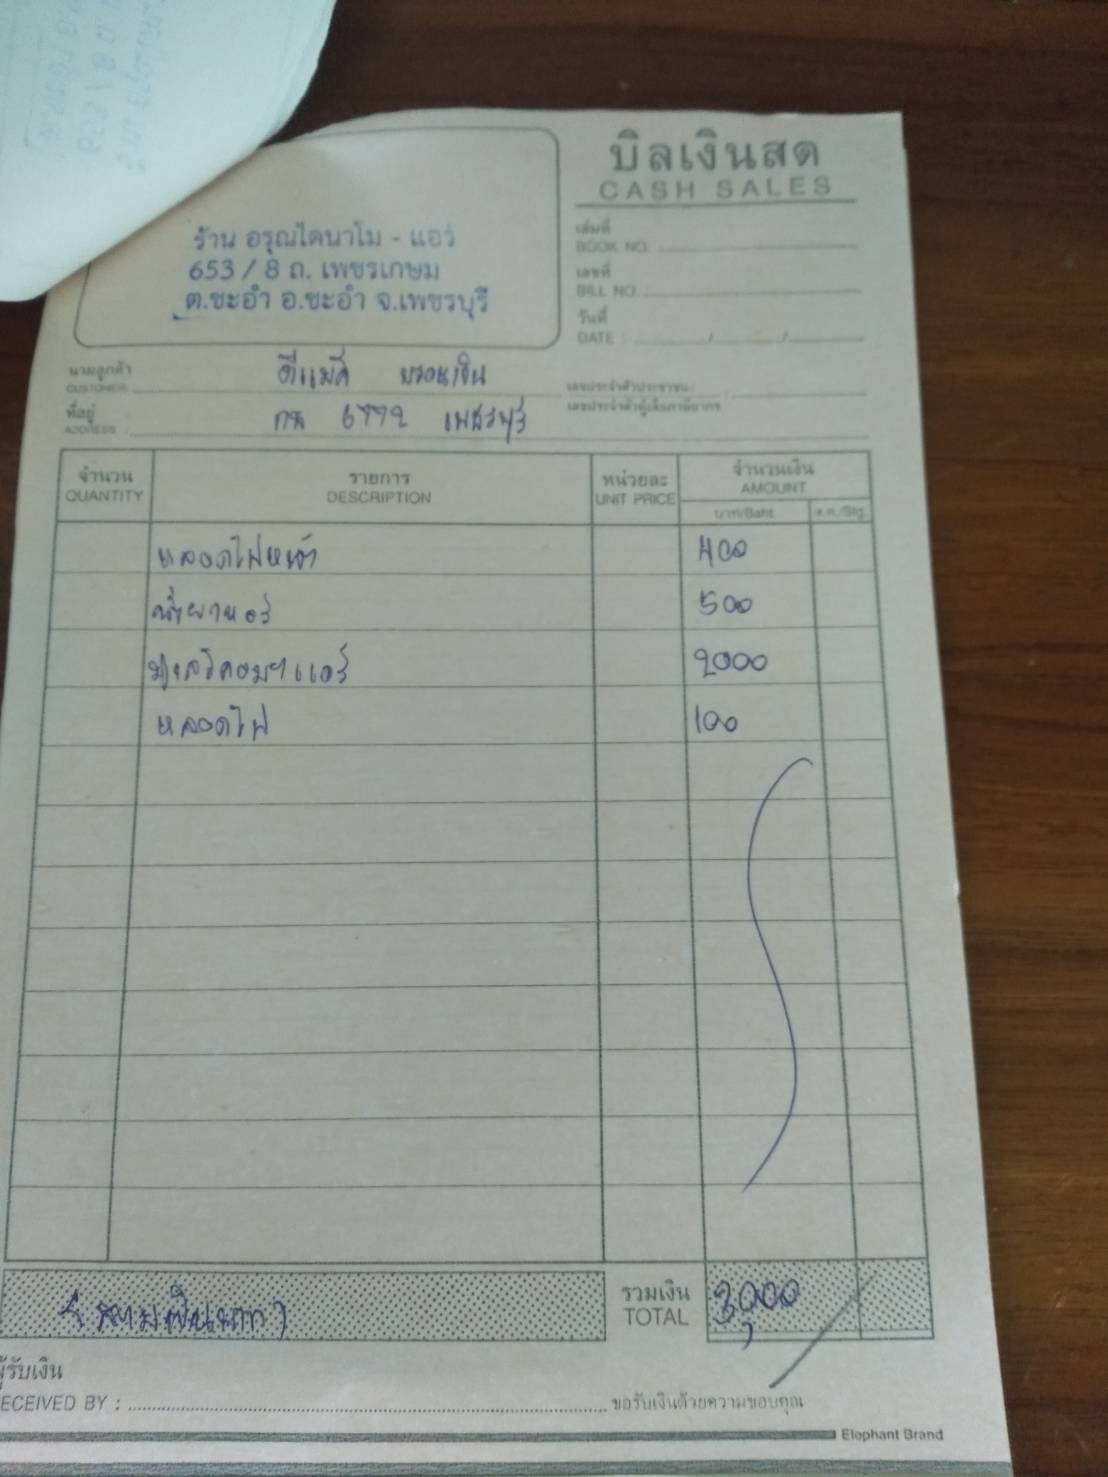 บิลเงินสด
CASH SALES
เล่มที่
BOOK NO.
เลขที่
BILL NO.
วันที่
DATE : / /
ร้าน อรุณไดนาโม - แอร์
653 / 8 ถ. เพชรเกษม
ต.ชะอำ อ.ชะอำ จ.เพชรบุรี
นามลูกค้า ดีแม็ค
CUSTOMER
เลขประจำตัวประชาชน :
ที่อยู่ เพชรบุรี
ADDRESS
เลขประจำตัวผู้เสียภาษีอากร
จำนวน รายการ หน่วยละ จำนวนเงิน
QUANTITY DESCRIPTION UNIT PRICE AMOUNT
บาท/Baht ส.ต./Stg.
หลอดไฟหน้า 400
น้ำยาแอร์ 500
คอมฯแอร์ 2000
หลอดไฟ 100
(สามพันบาท) รวมเงิน 3,000
TOTAL
ผู้รับเงิน
RECEIVED BY : ขอรับเงินด้วยความขอบคุณ
Elephant Brand